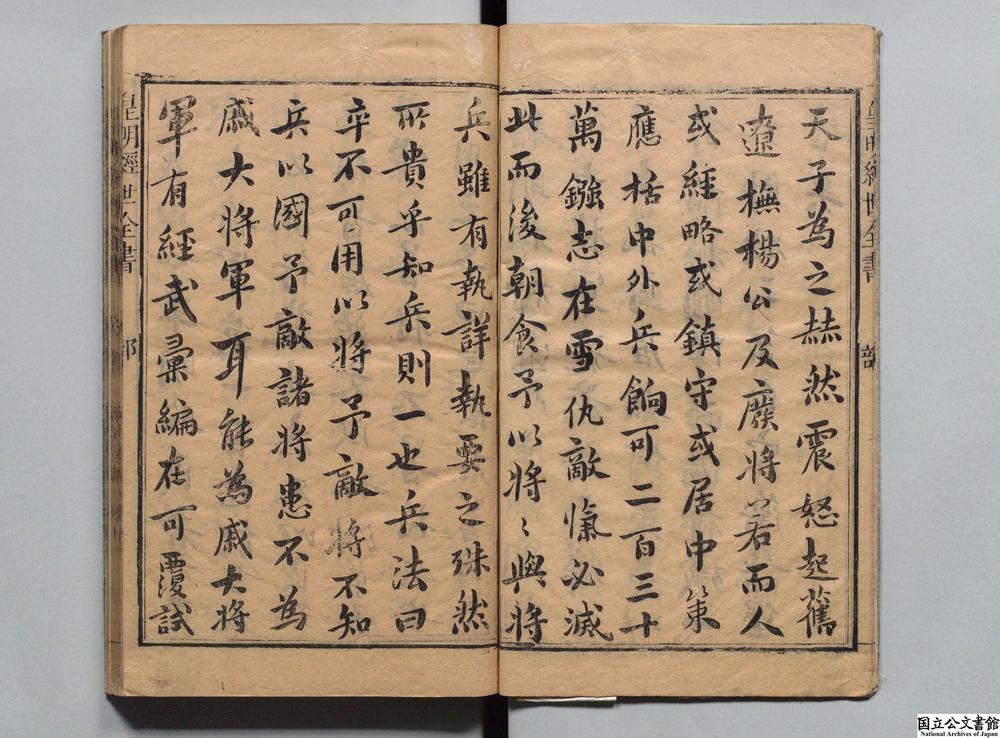 天子為之赫然震怒起舊
遼撫楊公及廢將若而人
或經略或鎮守或居中策
應括中外兵餉可二百三十
萬鏹志在雪仇敵愾必滅
此而後朝食予以將〻與將
兵雖有執詳執要之殊然
所貴乎知兵則一也兵法曰
卒不可用以將予敵將不知
兵以國予敵諸將患不為
戚大將軍耳能為戚大將
軍有經武彙編在可覆試
皇明經世全書
皇明經世全書
国立公文書館
National Archives of Japan